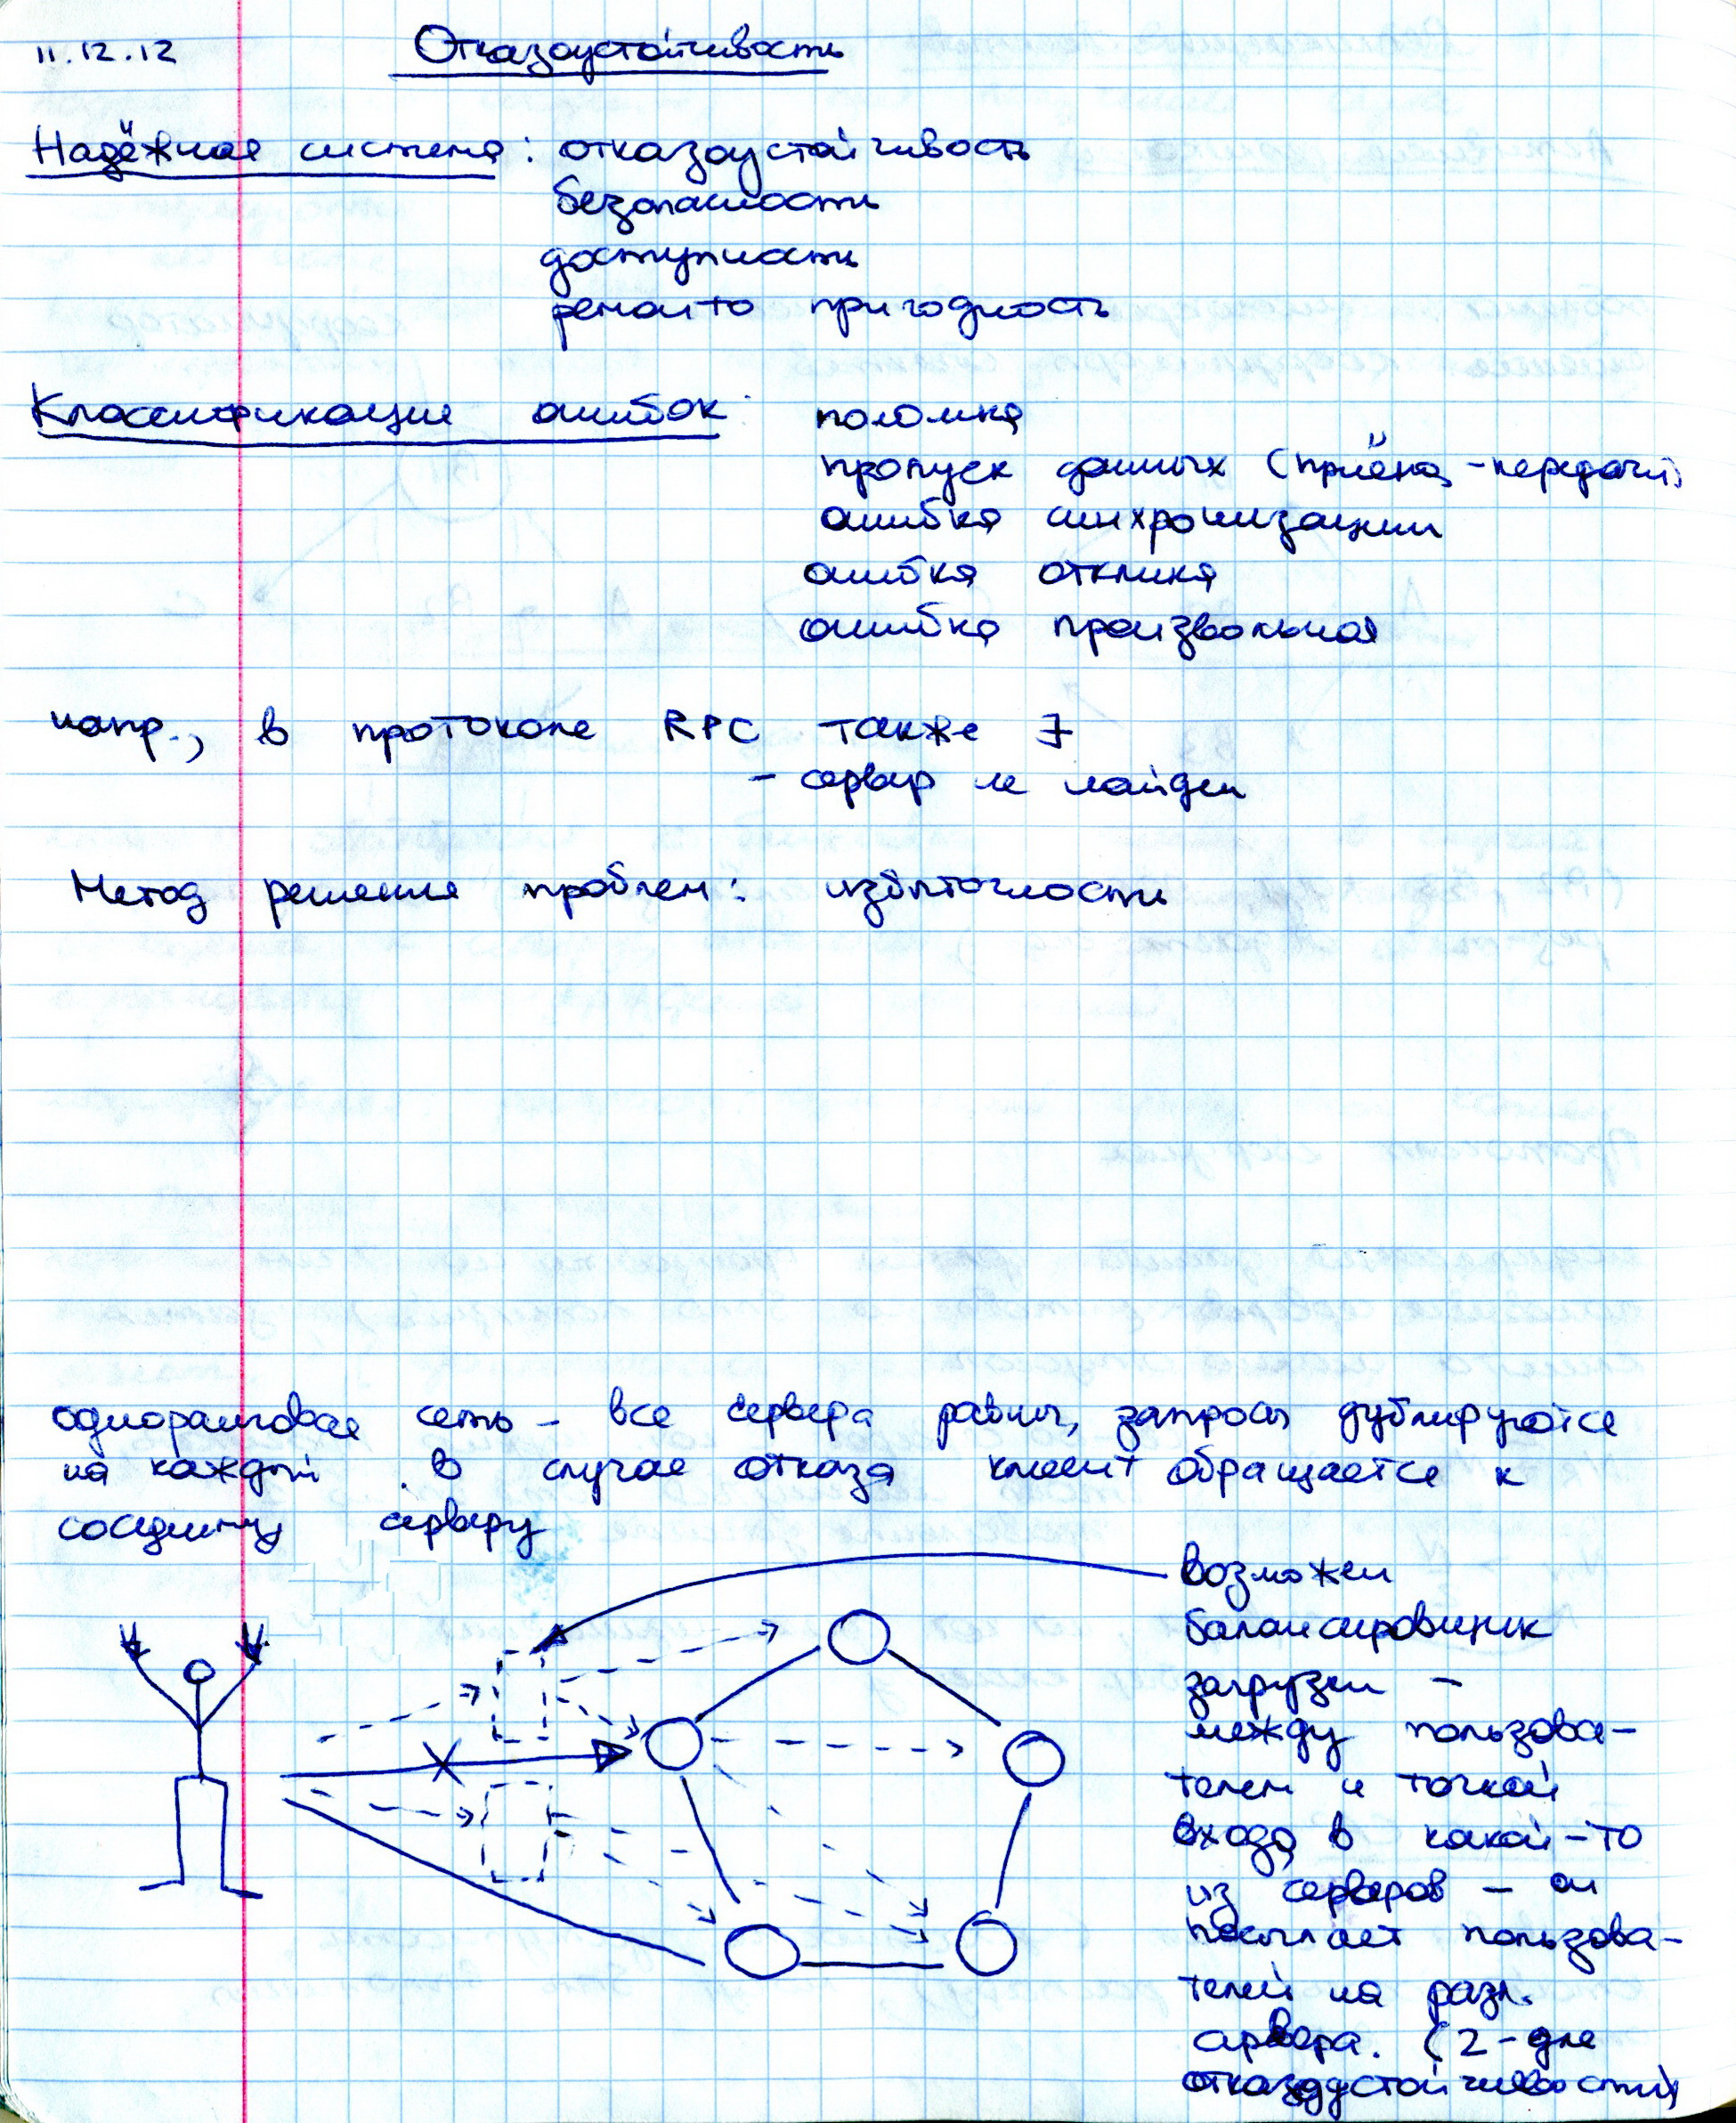 11.12.12
Отказоустойчивость
Надёжная система: отказоустойчивость
безопасность
доступность
ремонто пригодность
Классификация ошибок: поломка
пропуск данных (приёма-передачи)
ошибка синхронизации
ошибка отклика
ошибка произвольная
напр., в протоколе RPC также ∃
- сервер не найден
Метод решения проблем: избыточность
одноранговая сеть - все сервера равны, запросы дублируются
на каждый. В случае отказа клиент обращается к
соседнему серверу
возможен
балансировщик
загрузки -
между пользова-
телем и точкой
входа в какой-то
из серверов - он
посылает пользова-
телей на разл.
сервера. (2-для
отказоустойчивости)